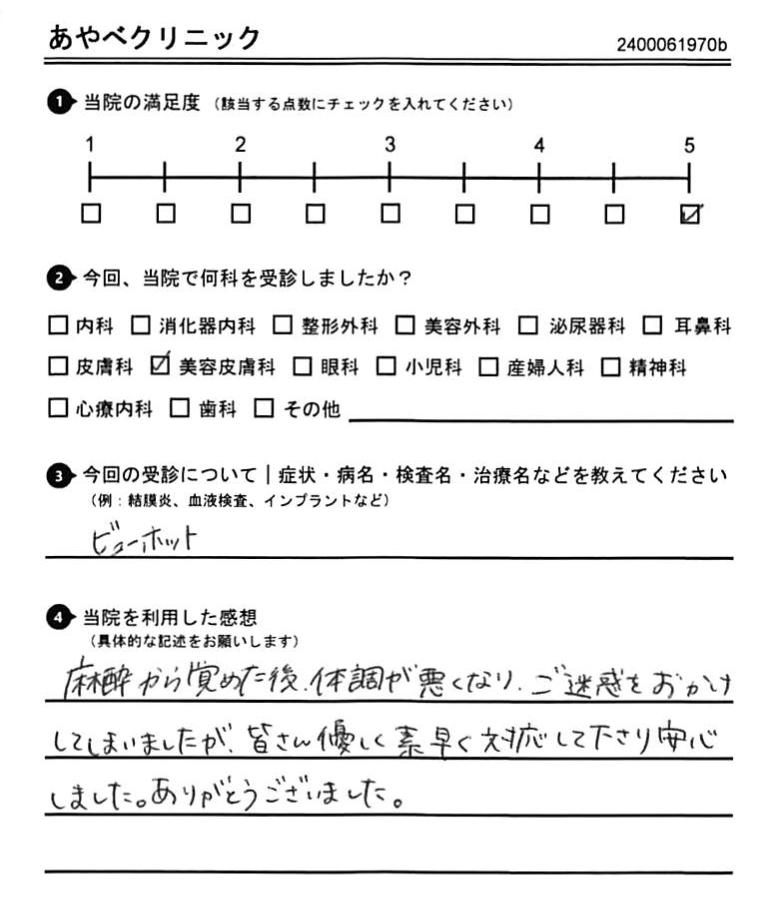 あやべクリニック
2400061970b
1 当院の満足度 (該当する点数にチェックを入れてください)
1 2 3 4 5
2 今回、当院で何科を受診しましたか?
内科 消化器内科 整形外科 美容外科 泌尿器科 耳鼻科
皮膚科 美容皮膚科 眼科 小児科 産婦人科 精神科
心療内科 歯科 その他
3 今回の受診について|症状・病名・検査名・治療名などを教えてください
(例:結膜炎、血液検査、インプラントなど)
ビューホット
4 当院を利用した感想
(具体的な記述をお願いします)
麻酔から覚めた後、体調が悪くなり、ご迷惑をおかけ
してしまいましたが、皆さん優しく素早く対応して下さり安心
しました。ありがとうございました。